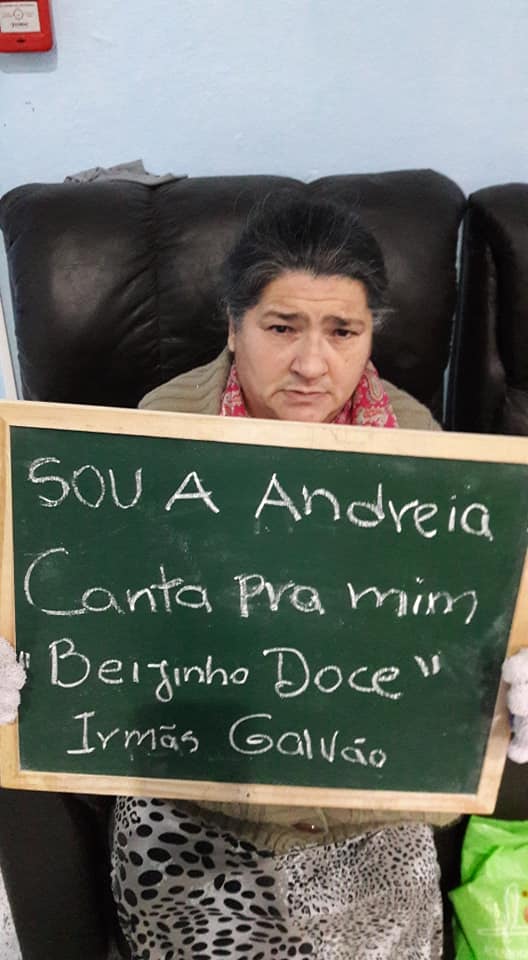 SOU A Andreia
Canta pra mim
"Beijinho Doce"
Irmãs Galvão